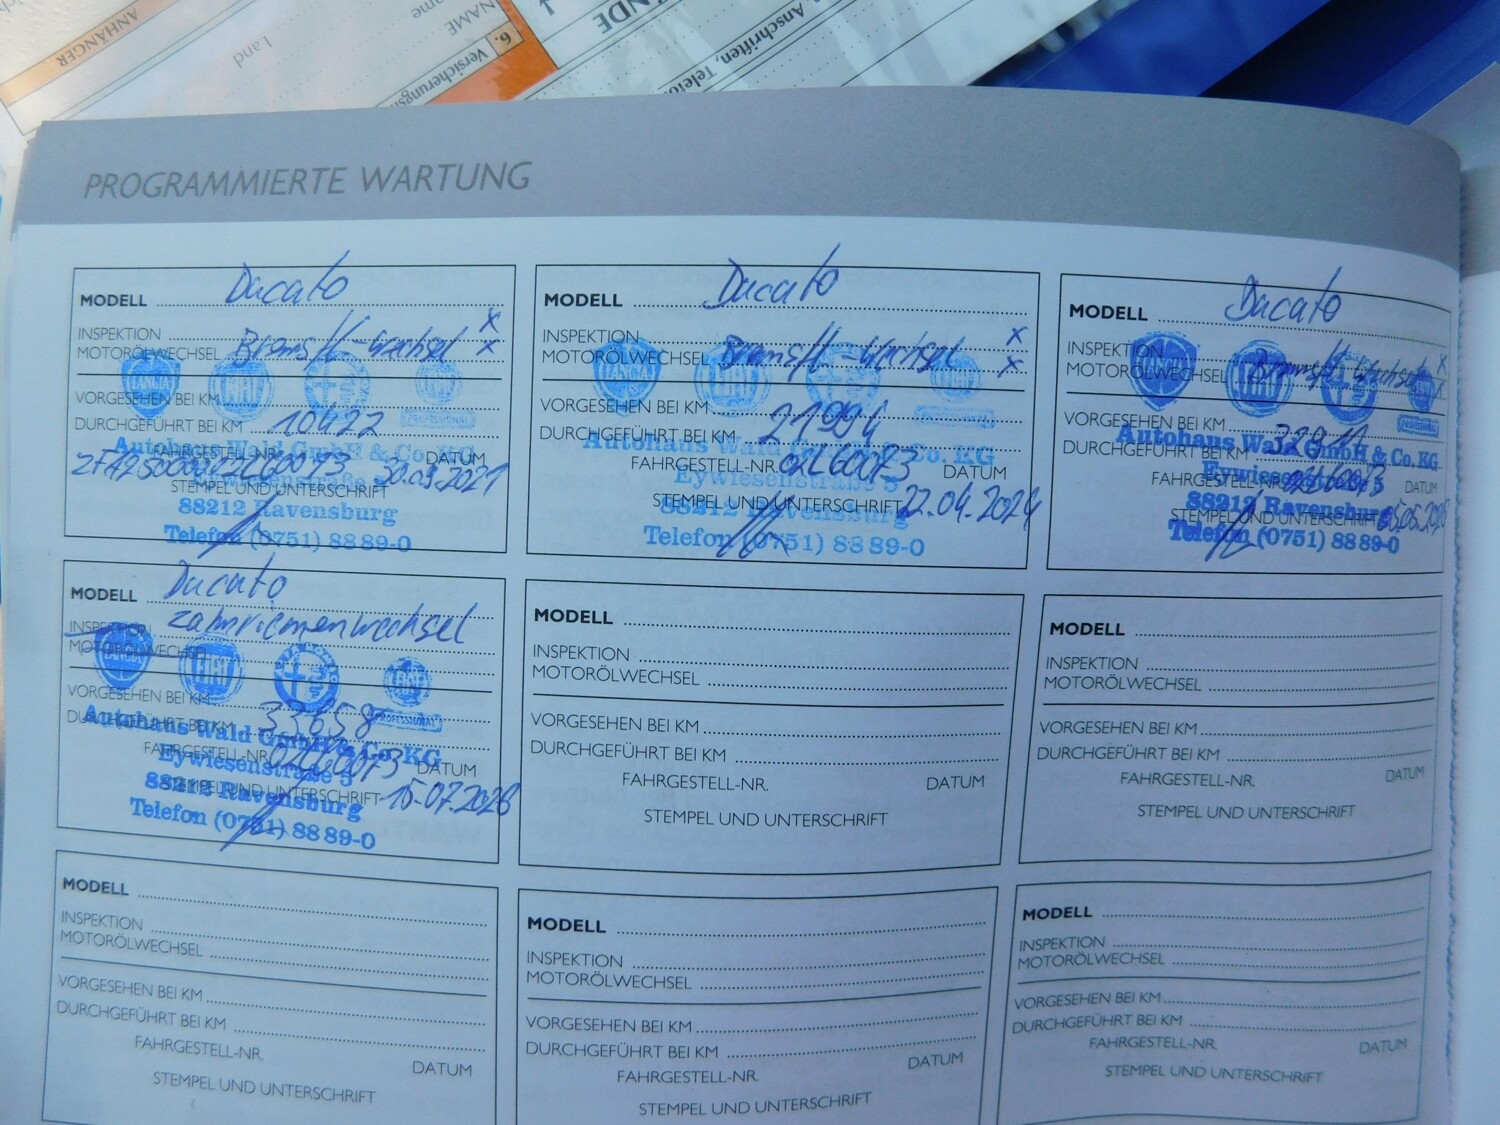 ANHÄNGER
Land
NAME
6. Versicherungs
Anschriften, Telefo
PROGRAMMIERTE WARTUNG
MODELL Ducato
INSPEKTION x
MOTORÖLWECHSEL Bremsfl-Wechsel x
LANCIA FIAT
PROFESSIONAL
VORGESEHEN BEI KM
DURCHGEFÜHRT BEI KM 10422
Autohaus Wald GmbH & Co. KG
FAHRGESTELL-NR. DATUM
30.09.2021
Eywiesenstraße 5
STEMPEL UND UNTERSCHRIFT
88212 Ravensburg
Telefon (0751) 88 89-0
MODELL Ducato
INSPEKTION x
MOTORÖLWECHSEL Bremsfl-Wechsel x
LANCIA FIAT
VORGESEHEN BEI KM
DURCHGEFÜHRT BEI KM 21994
Autohaus Wald GmbH & Co. KG
FAHRGESTELL-NR. 02L60073 DATUM
Eywiesenstraße 5
STEMPEL UND UNTERSCHRIFT 22.04.2024
88212 Ravensburg
Telefon (0751) 88 89-0
MODELL Ducato
INSPEKTION x
MOTORÖLWECHSEL Bremsfl-Wechsel x
LANCIA FIAT
PROFESSIONAL
VORGESEHEN BEI KM
DURCHGEFÜHRT BEI KM
Autohaus Wald GmbH & Co. KG
Eywiesenstraße 5
FAHRGESTELL-NR. 02L60073 DATUM
88212 Ravensburg
STEMPEL UND UNTERSCHRIFT
Telefon (0751) 88 89-0
MODELL Ducato
INSPEKTION Zahnriemenwechsel
MOTORÖLWECHSEL
LANCIA FIAT
PROFESSIONAL
VORGESEHEN BEI KM
DURCHGEFÜHRT BEI KM 33658
Autohaus Wald GmbH & Co. KG
FAHRGESTELL-NR. 02L60073 DATUM
Eywiesenstraße 5
STEMPEL UND UNTERSCHRIFT
88212 Ravensburg
Telefon (0751) 88 89-0
MODELL
INSPEKTION
MOTORÖLWECHSEL
VORGESEHEN BEI KM
DURCHGEFÜHRT BEI KM
FAHRGESTELL-NR. DATUM
STEMPEL UND UNTERSCHRIFT
MODELL
INSPEKTION
MOTORÖLWECHSEL
VORGESEHEN BEI KM
DURCHGEFÜHRT BEI KM
FAHRGESTELL-NR. DATUM
STEMPEL UND UNTERSCHRIFT
MODELL
INSPEKTION
MOTORÖLWECHSEL
VORGESEHEN BEI KM
DURCHGEFÜHRT BEI KM
FAHRGESTELL-NR. DATUM
STEMPEL UND UNTERSCHRIFT
MODELL
INSPEKTION
MOTORÖLWECHSEL
VORGESEHEN BEI KM
DURCHGEFÜHRT BEI KM
FAHRGESTELL-NR. DATUM
STEMPEL UND UNTERSCHRIFT
MODELL
INSPEKTION
MOTORÖLWECHSEL
VORGESEHEN BEI KM
DURCHGEFÜHRT BEI KM
FAHRGESTELL-NR. DATUM
STEMPEL UND UNTERSCHRIFT